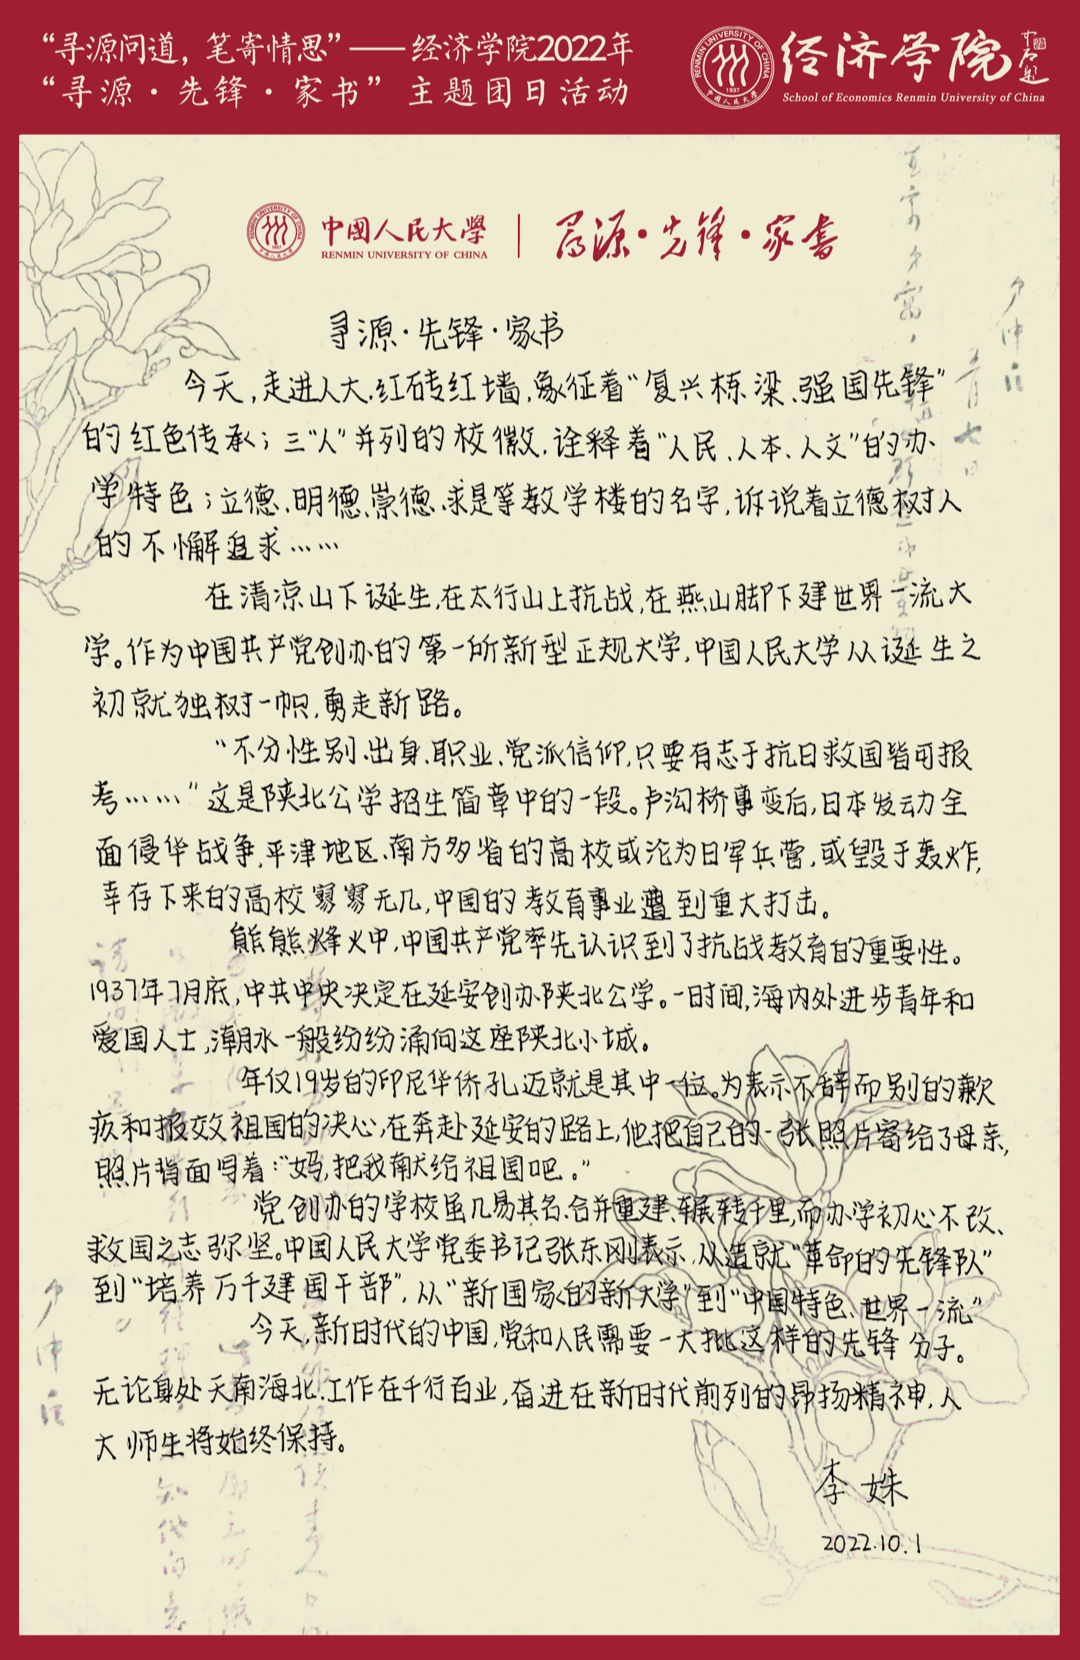 “寻源问道，笔寄情思”——经济学院2022年
“寻源·先锋·家书”主题团日活动
RENMIN UNIVERSITY OF CHINA
1937
中国人民大学
经济学院
School of Economics Renmin University of China
RENMIN UNIVERSITY OF CHINA
1937
中国人民大学
中國人民大學
RENMIN UNIVERSITY OF CHINA
寻源·先锋·家书
寻源·先锋·家书
今天,走进人大.红砖红墙,象征着“复兴栋梁、强国先锋”
的红色传承；三“人”并列的校徽,诠释着“人民、人本、人文”的办
学特色；立德、明德、崇德、求是等教学楼的名字,诉说着立德树人
的不懈追求……
在清凉山下诞生,在太行山上抗战,在燕山脚下建世界一流大
学。作为中国共产党创办的第一所新型正规大学,中国人民大学从诞生之
初就独树一帜,勇走新路。
“不分性别、出身、职业、党派信仰,只要有志于抗日救国皆可报
考……”这是陕北公学招生简章中的一段。卢沟桥事变后,日本发动全
面侵华战争,平津地区、南方多省的高校或沦为日军兵营,或毁于轰炸,
幸存下来的高校寥寥无几,中国的教育事业遭到重大打击。
熊熊烽火中,中国共产党率先认识到了抗战教育的重要性。
1937年7月底,中共中央决定在延安创办陕北公学。一时间,海内外进步青年和
爱国人士,潮水一般纷纷涌向这座陕北小城。
年仅19岁的印尼华侨孔迈就是其中一位。为表示不辞而别的歉
疚和报效祖国的决心,在奔赴延安的路上,他把自己的一张照片寄给了母亲,
照片背面写着:“妈,把我献给祖国吧。”
党创办的学校虽几易其名、合并重建、辗转千里,而办学初心不改、
救国之志弥坚。中国人民大学党委书记张东刚表示,从造就“革命的先锋队”
到“培养万千建国干部”,从“新国家的新大学”到“中国特色、世界一流”
今天,新时代的中国,党和人民需要一大批这样的先锋分子。
无论身处天南海北、工作在千行百业,奋进在新时代前列的昂扬精神,人
大师生将始终保持。
李姝
2022.10.1